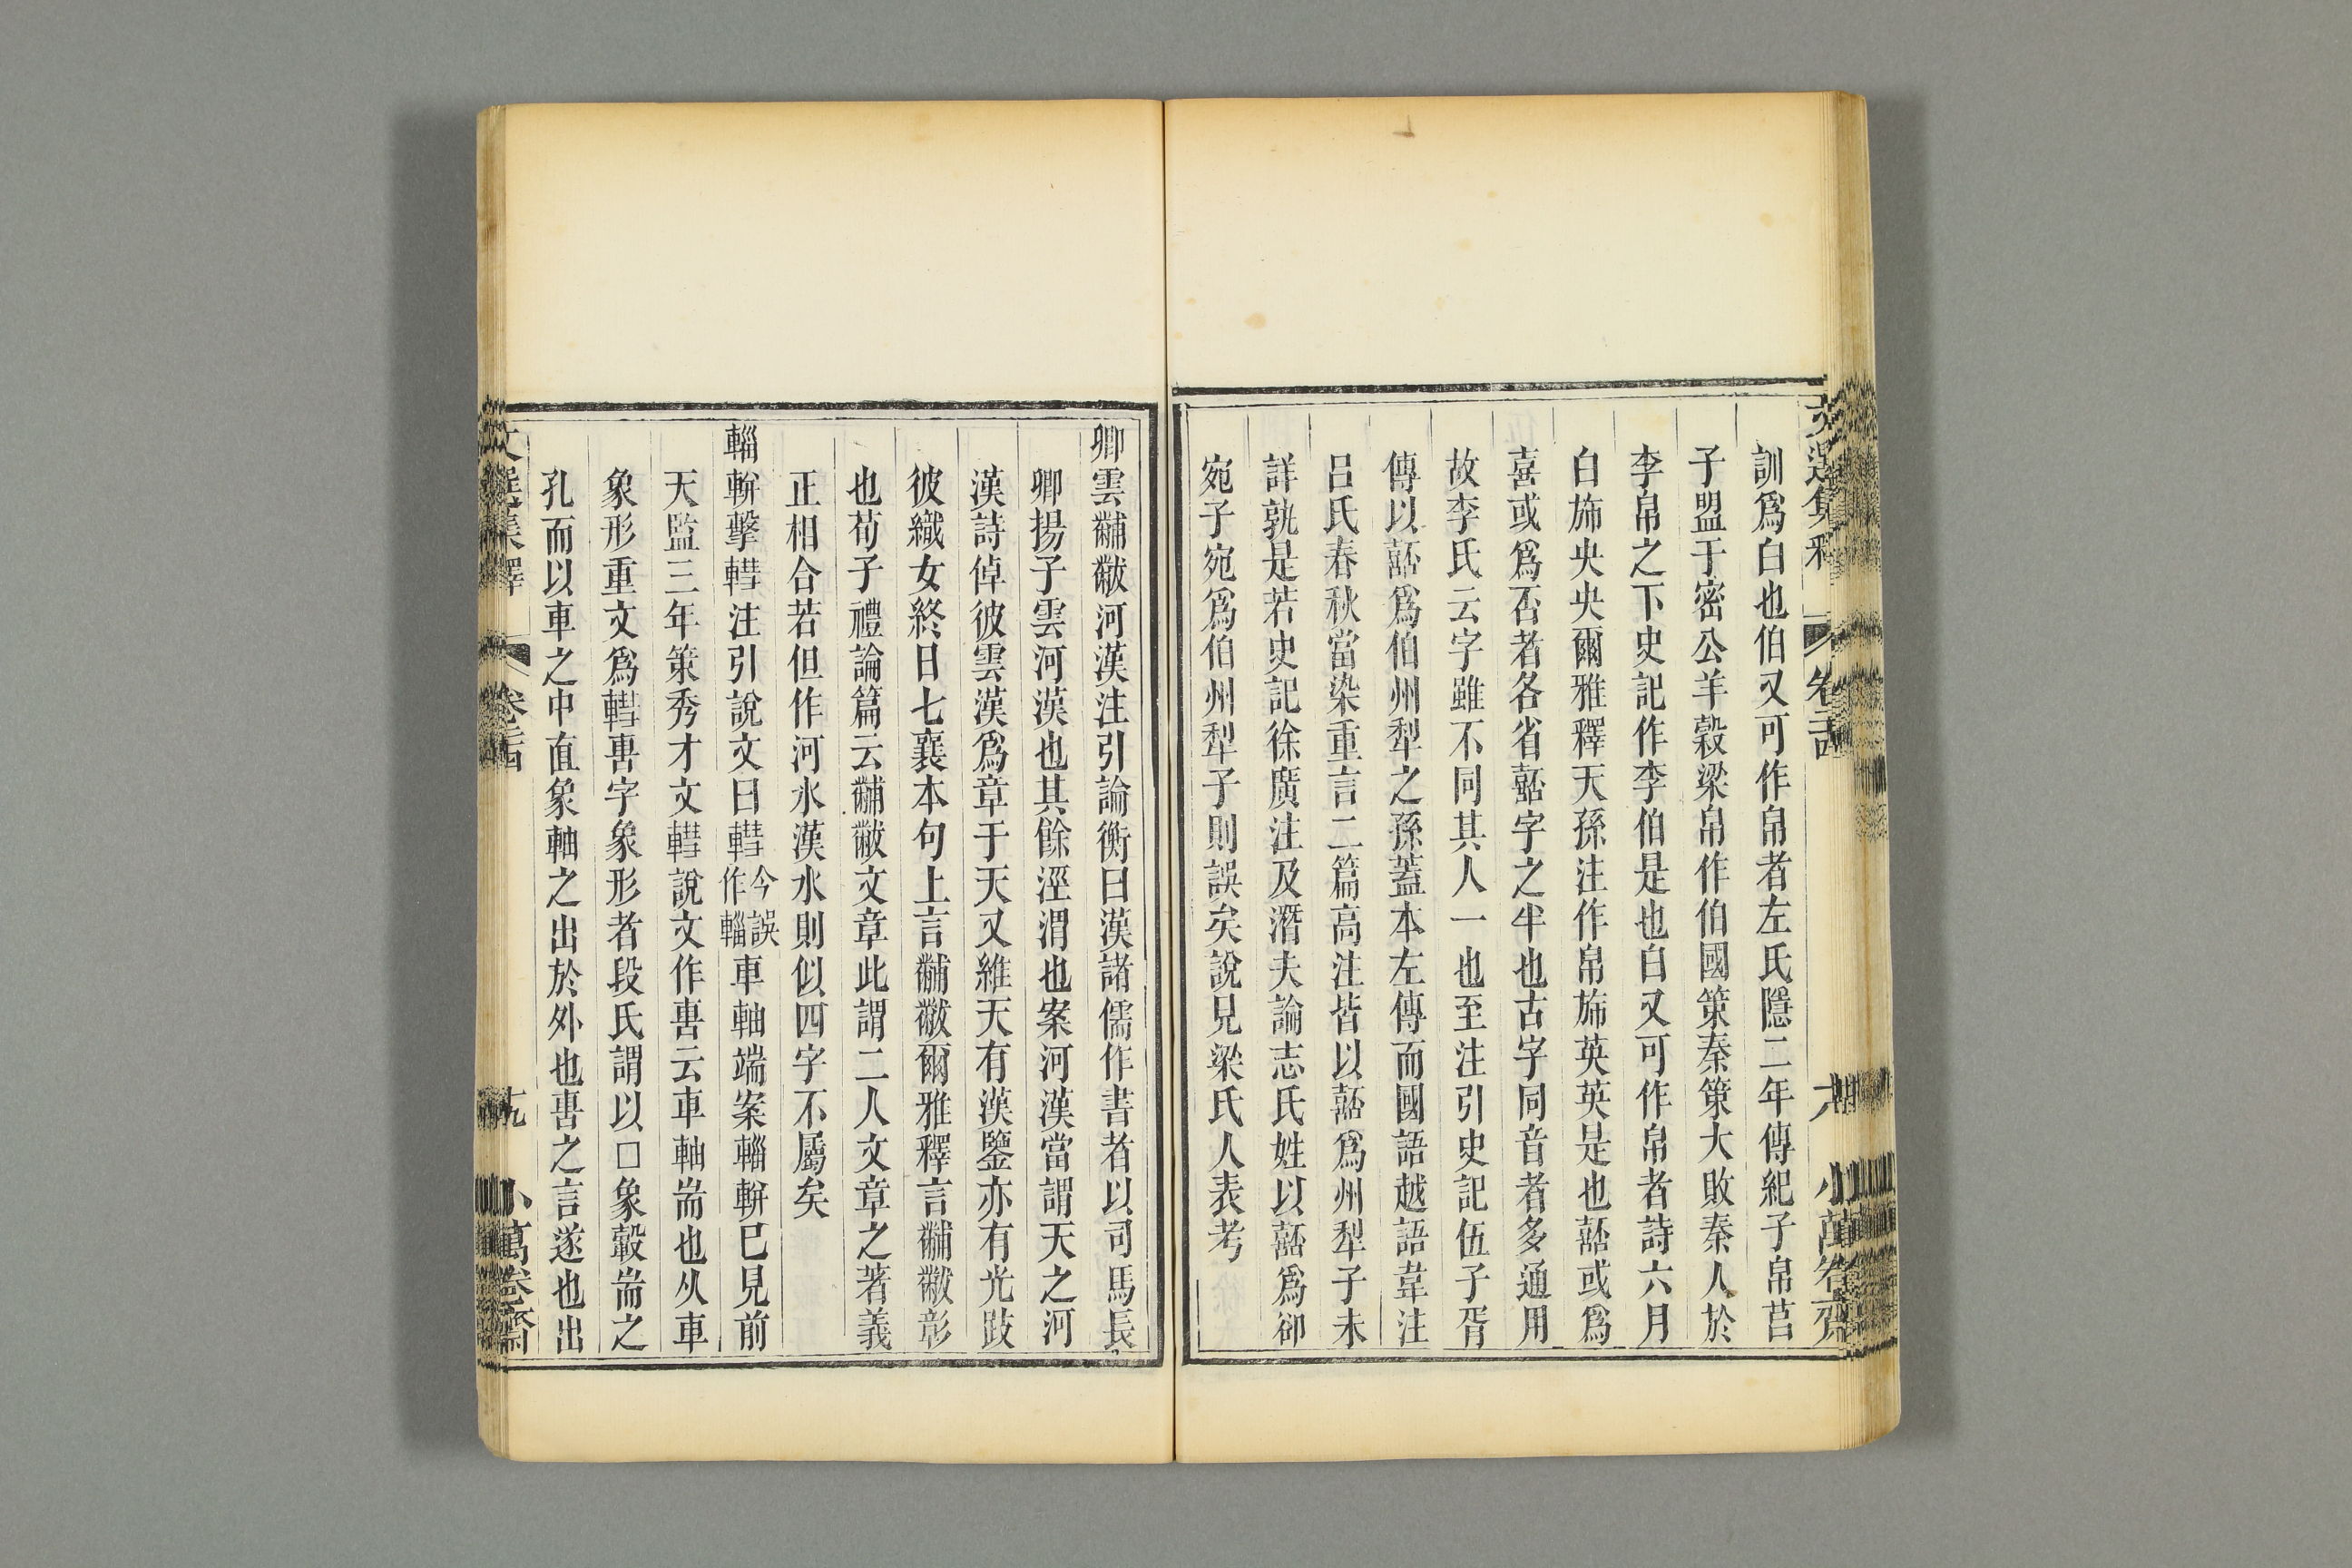 文選集釋 卷二十四 十八 小萬卷齋
訓爲白也伯又可作帛者左氏隱二年傳紀子帛莒
子盟于密公羊穀梁帛作伯國策秦策大敗秦人於
李帛之下史記作李伯是也白又可作帛者詩六月
白斾央央爾雅釋天孫注作帛斾英英是也嚭或爲
喜或爲否者各省嚭字之半也古字同音者多通用
故李氏云字雖不同其人一也至注引史記伍子胥
傳以嚭爲伯州犁之孫蓋本左傳而國語越語韋注
呂氏春秋當染重言二篇高注皆以嚭爲州犁子未
詳孰是若史記徐廣注及潛夫論志氏姓以嚭爲郤
宛子宛爲伯州犁子則誤矣說見梁氏人表考
卿雲黼黻河漢注引論衡曰漢諸儒作書者以司馬長
卿揚子雲河漢也其餘涇渭也案河漢當謂天之河
漢詩倬彼雲漢爲章于天又維天有漢鑒亦有光跂
彼織女終日七襄本句上言黼黻爾雅釋言黼黻彰
也荀子禮論篇云黼黻文章此謂二人文章之著義
正相合若但作河水漢水則似四字不屬矣
輜軿擊轊注引說文曰轊今誤作輜車軸端案輜軿已見前
天監三年策秀才文轊說文作軎云車軸耑也从車
象形重文爲轊軎字象形者段氏謂以口象轂耑之
孔而以車之中直象軸之出於外也軎之言遂也出
文選集釋 卷二十四 十九 小萬卷齋